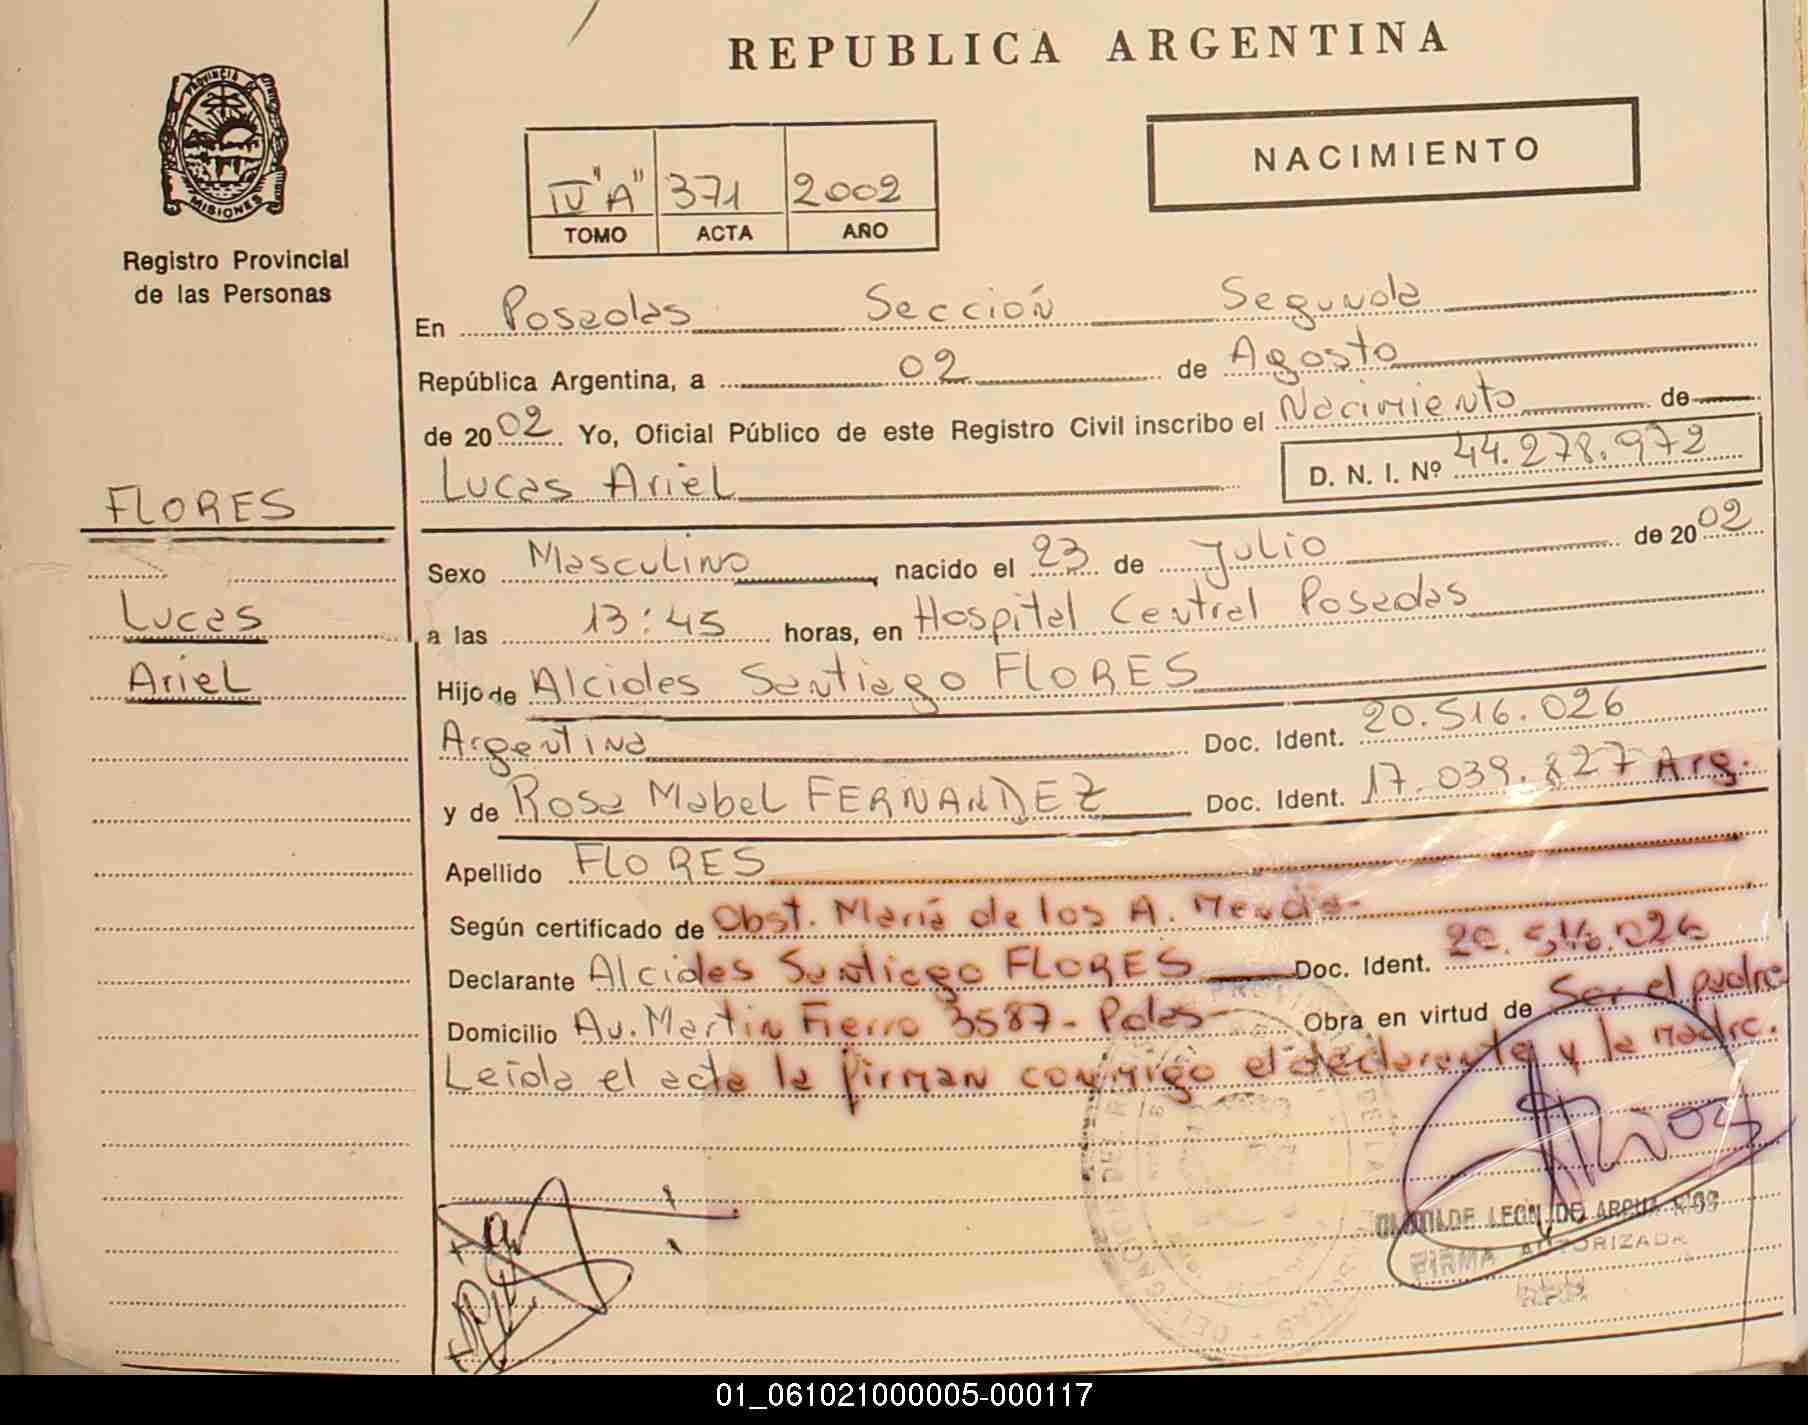 REPUBLICA ARGENTINA
PROVINCIA DE
MISIONES
Registro Provincial
de las Personas
NACIMIENTO
IV "A" 371 2002
TOMO ACTA AÑO
En Posadas Sección Segunda
República Argentina, a 02 de Agosto
de 2002 Yo, Oficial Público de este Registro Civil inscribo el Nacimiento de
Lucas Ariel D. N. I. Nº 44.278.972
FLORES
Lucas
Ariel
Sexo Masculino nacido el 23 de Julio de 2002
a las 13:45 horas, en Hospital Central Posadas
Hijo de Alcides Santiago FLORES
Argentina Doc. Ident. 20.516.026
y de Rosa Mabel FERNANDEZ Doc. Ident. 17.039.827 Arg.
Apellido FLORES
Según certificado de Obst. María de los A.
Declarante Alcides Santiago FLORES Doc. Ident. 20.516.026
Domicilio Av. Martin Fierro 3587 - Pdas - Obra en virtud de Ser el padre
Leída el acta la firman conmigo el declarante y la madre.
LEON DE
FIRMA AUTORIZADA
01_061021000005-000117